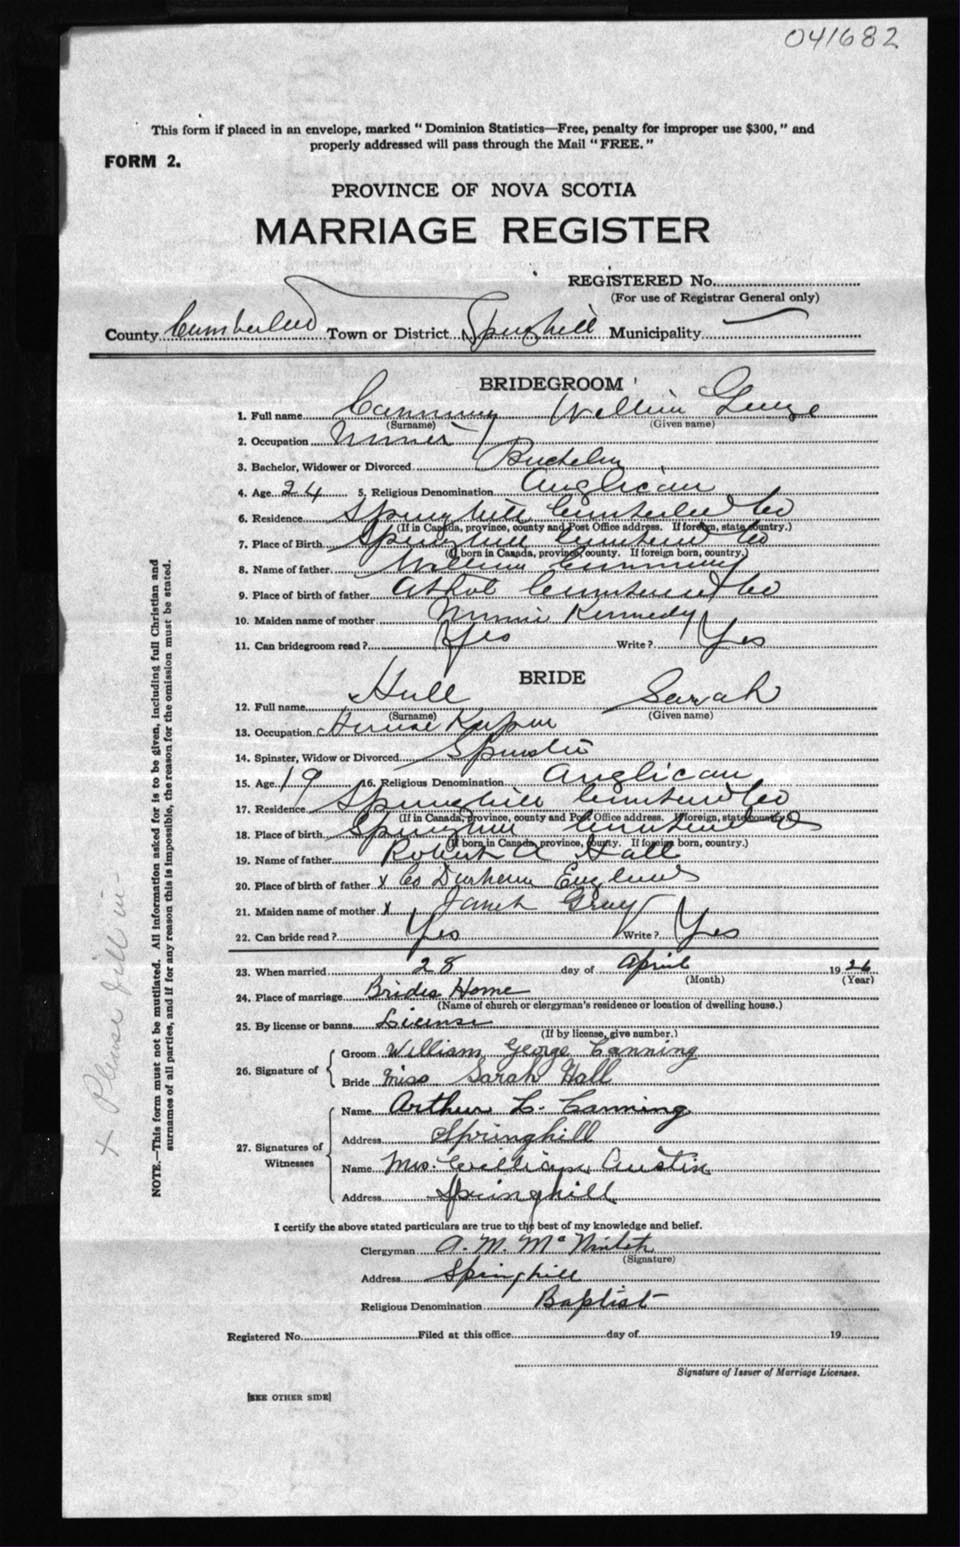 041682
This form if placed in an envelope, marked "Dominion Statistics—Free, penalty for improper use $300," and
properly addressed will pass through the Mail "FREE."
FORM 2.
PROVINCE OF NOVA SCOTIA
MARRIAGE REGISTER
REGISTERED No.
(For use of Registrar General only)
County Cumberland Town or District Springhill Municipality
BRIDEGROOM
1. Full name Canning William George
(Surname) (Given name)
2. Occupation Miner
3. Bachelor, Widower or Divorced Bachelor
4. Age 24 5. Religious Denomination Anglican
6. Residence Springhill Cumberland Co
(If in Canada, province, county and Post Office address. If foreign, state country.)
7. Place of Birth Springhill Cumberland Co
(If born in Canada, province, county. If foreign born, country.)
8. Name of father William Canning
9. Place of birth of father Athol Cumberland Co
10. Maiden name of mother Minnie Kennedy
11. Can bridegroom read? Yes Write? Yes
BRIDE
12. Full name Hall Sarah
(Surname) (Given name)
13. Occupation House Keeper
14. Spinster, Widow or Divorced Spinster
15. Age 19 16. Religious Denomination Anglican
17. Residence Springhill Cumberland Co
(If in Canada, province, county and Post Office address. If foreign, state country.)
18. Place of birth Springhill Cumberland Co
(If born in Canada, province, county. If foreign born, country.)
19. Name of father Robert A Hall
20. Place of birth of father x Co Durham England
21. Maiden name of mother x Janet Gray
22. Can bride read? Yes Write? Yes
23. When married 28 day of April 1926
(Month) (Year)
24. Place of marriage Brides Home
(Name of church or clergyman's residence or location of dwelling house.)
25. By license or banns License
(If by license, give number.)
26. Signature of
Groom William George Canning
Bride Miss Sarah Hall
27. Signatures of Witnesses
Name Arthur L. Canning
Address Springhill
Name Mrs. William Austin
Address Springhill
I certify the above stated particulars are true to the best of my knowledge and belief.
Clergyman A. M. McNintch
(Signature)
Address Springhill
Religious Denomination Baptist
Registered No. Filed at this office day of 19
Signature of Issuer of Marriage Licenses.
[SEE OTHER SIDE]
NOTE.—This form must not be mutilated. All information asked for is to be given, including full Christian and
surnames of all parties, and if for any reason this is impossible, the reason for the omission must be stated.
x Please fill in -